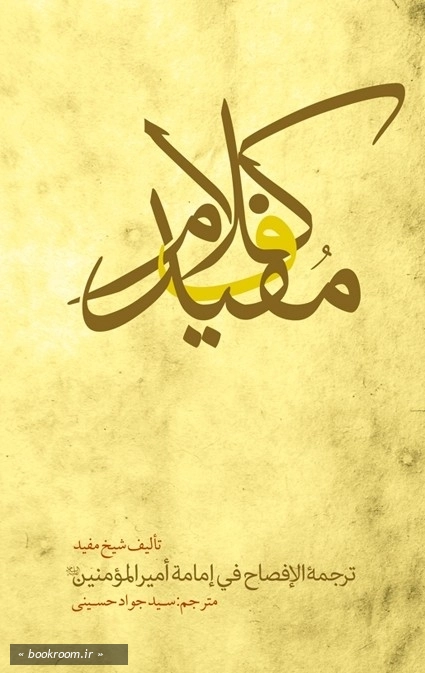 کلام مُفید
تألیف شیخ مفید
ترجمهٔ الإفصاح في إمامة أمیرالمؤمنین
مترجم: سید جواد حسینی
« bookroom.ir »